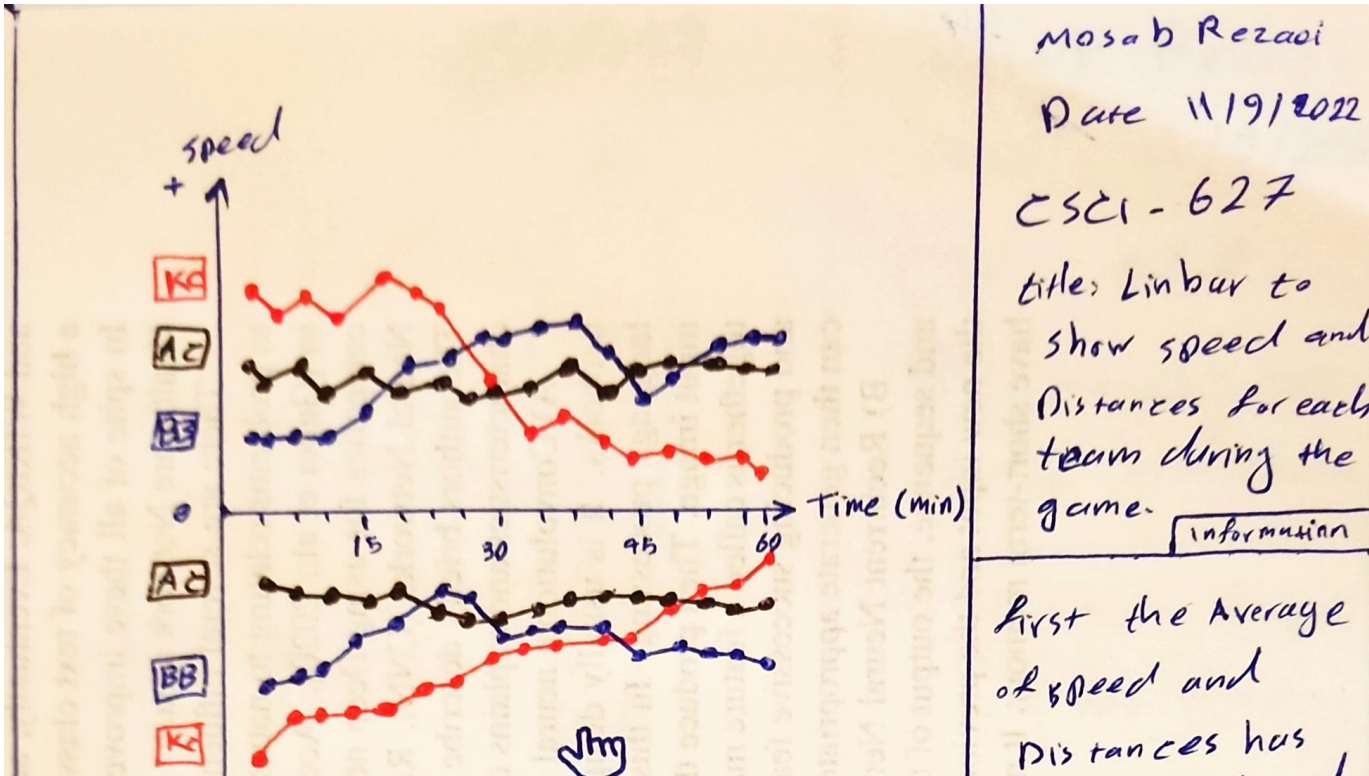 speed
+
KC
AC
BB
0
Time (min)
15 30 45 60
AC
BB
K
Mosab Rezaei
Date 11/9/2022
CSCI - 627
title: Linbar to
show speed and
Distances for each
team during the
game.
information
first the Average
of speed and
Distances has